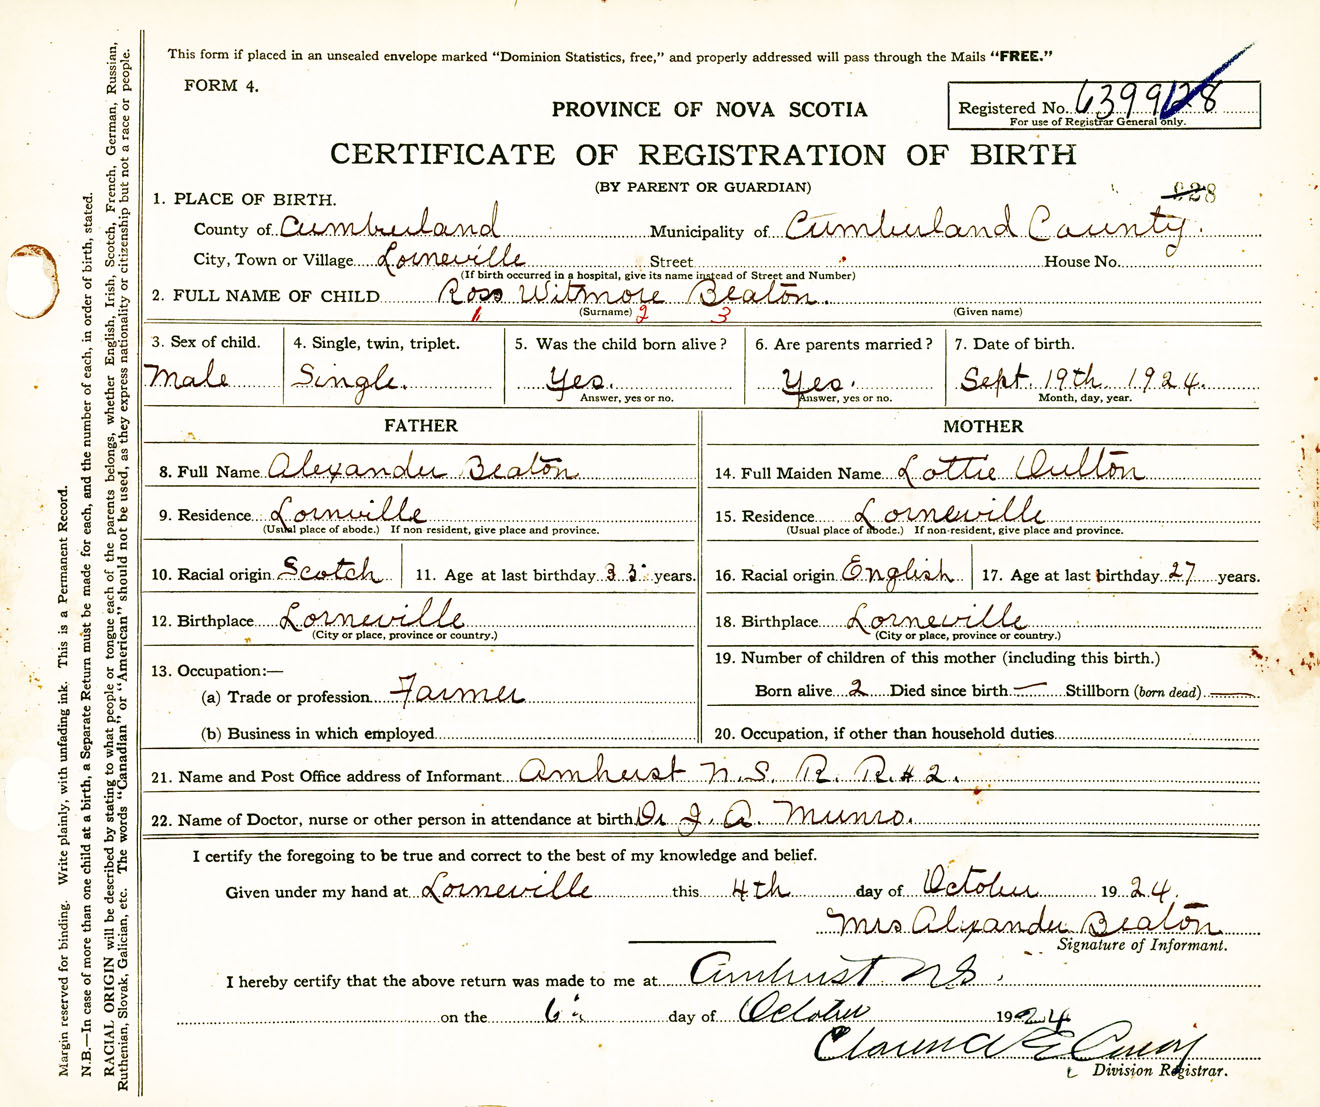 This form if placed in an unsealed envelope marked "Dominion Statistics, free," and properly addressed will pass through the Mails "FREE."
FORM 4.
Registered No. 6399128
For use of Registrar General only.
PROVINCE OF NOVA SCOTIA
CERTIFICATE OF REGISTRATION OF BIRTH
(BY PARENT OR GUARDIAN)
1. PLACE OF BIRTH.
County of Cumberland Municipality of Cumberland County.
City, Town or Village Lorneville Street House No.
(If birth occurred in a hospital, give its name instead of Street and Number)
2. FULL NAME OF CHILD Ross Witmore Beaton.
1 (Surname) 2 3 (Given name)
3. Sex of child. 4. Single, twin, triplet. 5. Was the child born alive? 6. Are parents married? 7. Date of birth.
Male Single. Yes. Yes. Sept. 19th 1924.
Answer, yes or no. Answer, yes or no. Month, day, year.
FATHER MOTHER
8. Full Name Alexander Beaton 14. Full Maiden Name Lottie Oulton
9. Residence Lornville 15. Residence Lorneville
(Usual place of abode.) If non resident, give place and province. (Usual place of abode.) If non-resident, give place and province.
10. Racial origin Scotch 11. Age at last birthday 33 years. 16. Racial origin English 17. Age at last birthday 27 years.
12. Birthplace Lorneville 18. Birthplace Lorneville
(City or place, province or country.) (City or place, province or country.)
13. Occupation:— 19. Number of children of this mother (including this birth.)
(a) Trade or profession Farmer Born alive 2 Died since birth — Stillborn (born dead) —
(b) Business in which employed 20. Occupation, if other than household duties
21. Name and Post Office address of Informant Amherst N.S. R. R. # 2.
22. Name of Doctor, nurse or other person in attendance at birth Dr J. A. Munro.
I certify the foregoing to be true and correct to the best of my knowledge and belief.
Given under my hand at Lorneville this 4th day of October 1924.
Mrs Alexander Beaton
Signature of Informant.
I hereby certify that the above return was made to me at Amherst N.S.
on the 6 day of October 1924
Clarence E
Division Registrar.
Margin reserved for binding. Write plainly, with unfading ink. This is a Permanent Record.
N.B.—In case of more than one child at a birth, a Separate Return must be made for each, and the number of each, in order of birth, stated.
RACIAL ORIGIN will be described by stating to what people or tongue each of the parents belongs, whether English, Irish, Scotch, French, German, Russian,
Ruthenian, Slovak, Galician, etc. The words "Canadian" or "American" should not be used, as they express nationality or citizenship but not a race or people.